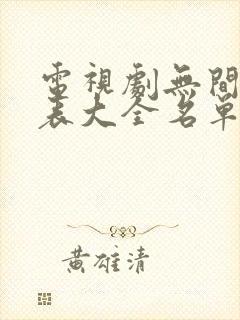 電視劇無間
表大全名單
黃雄清